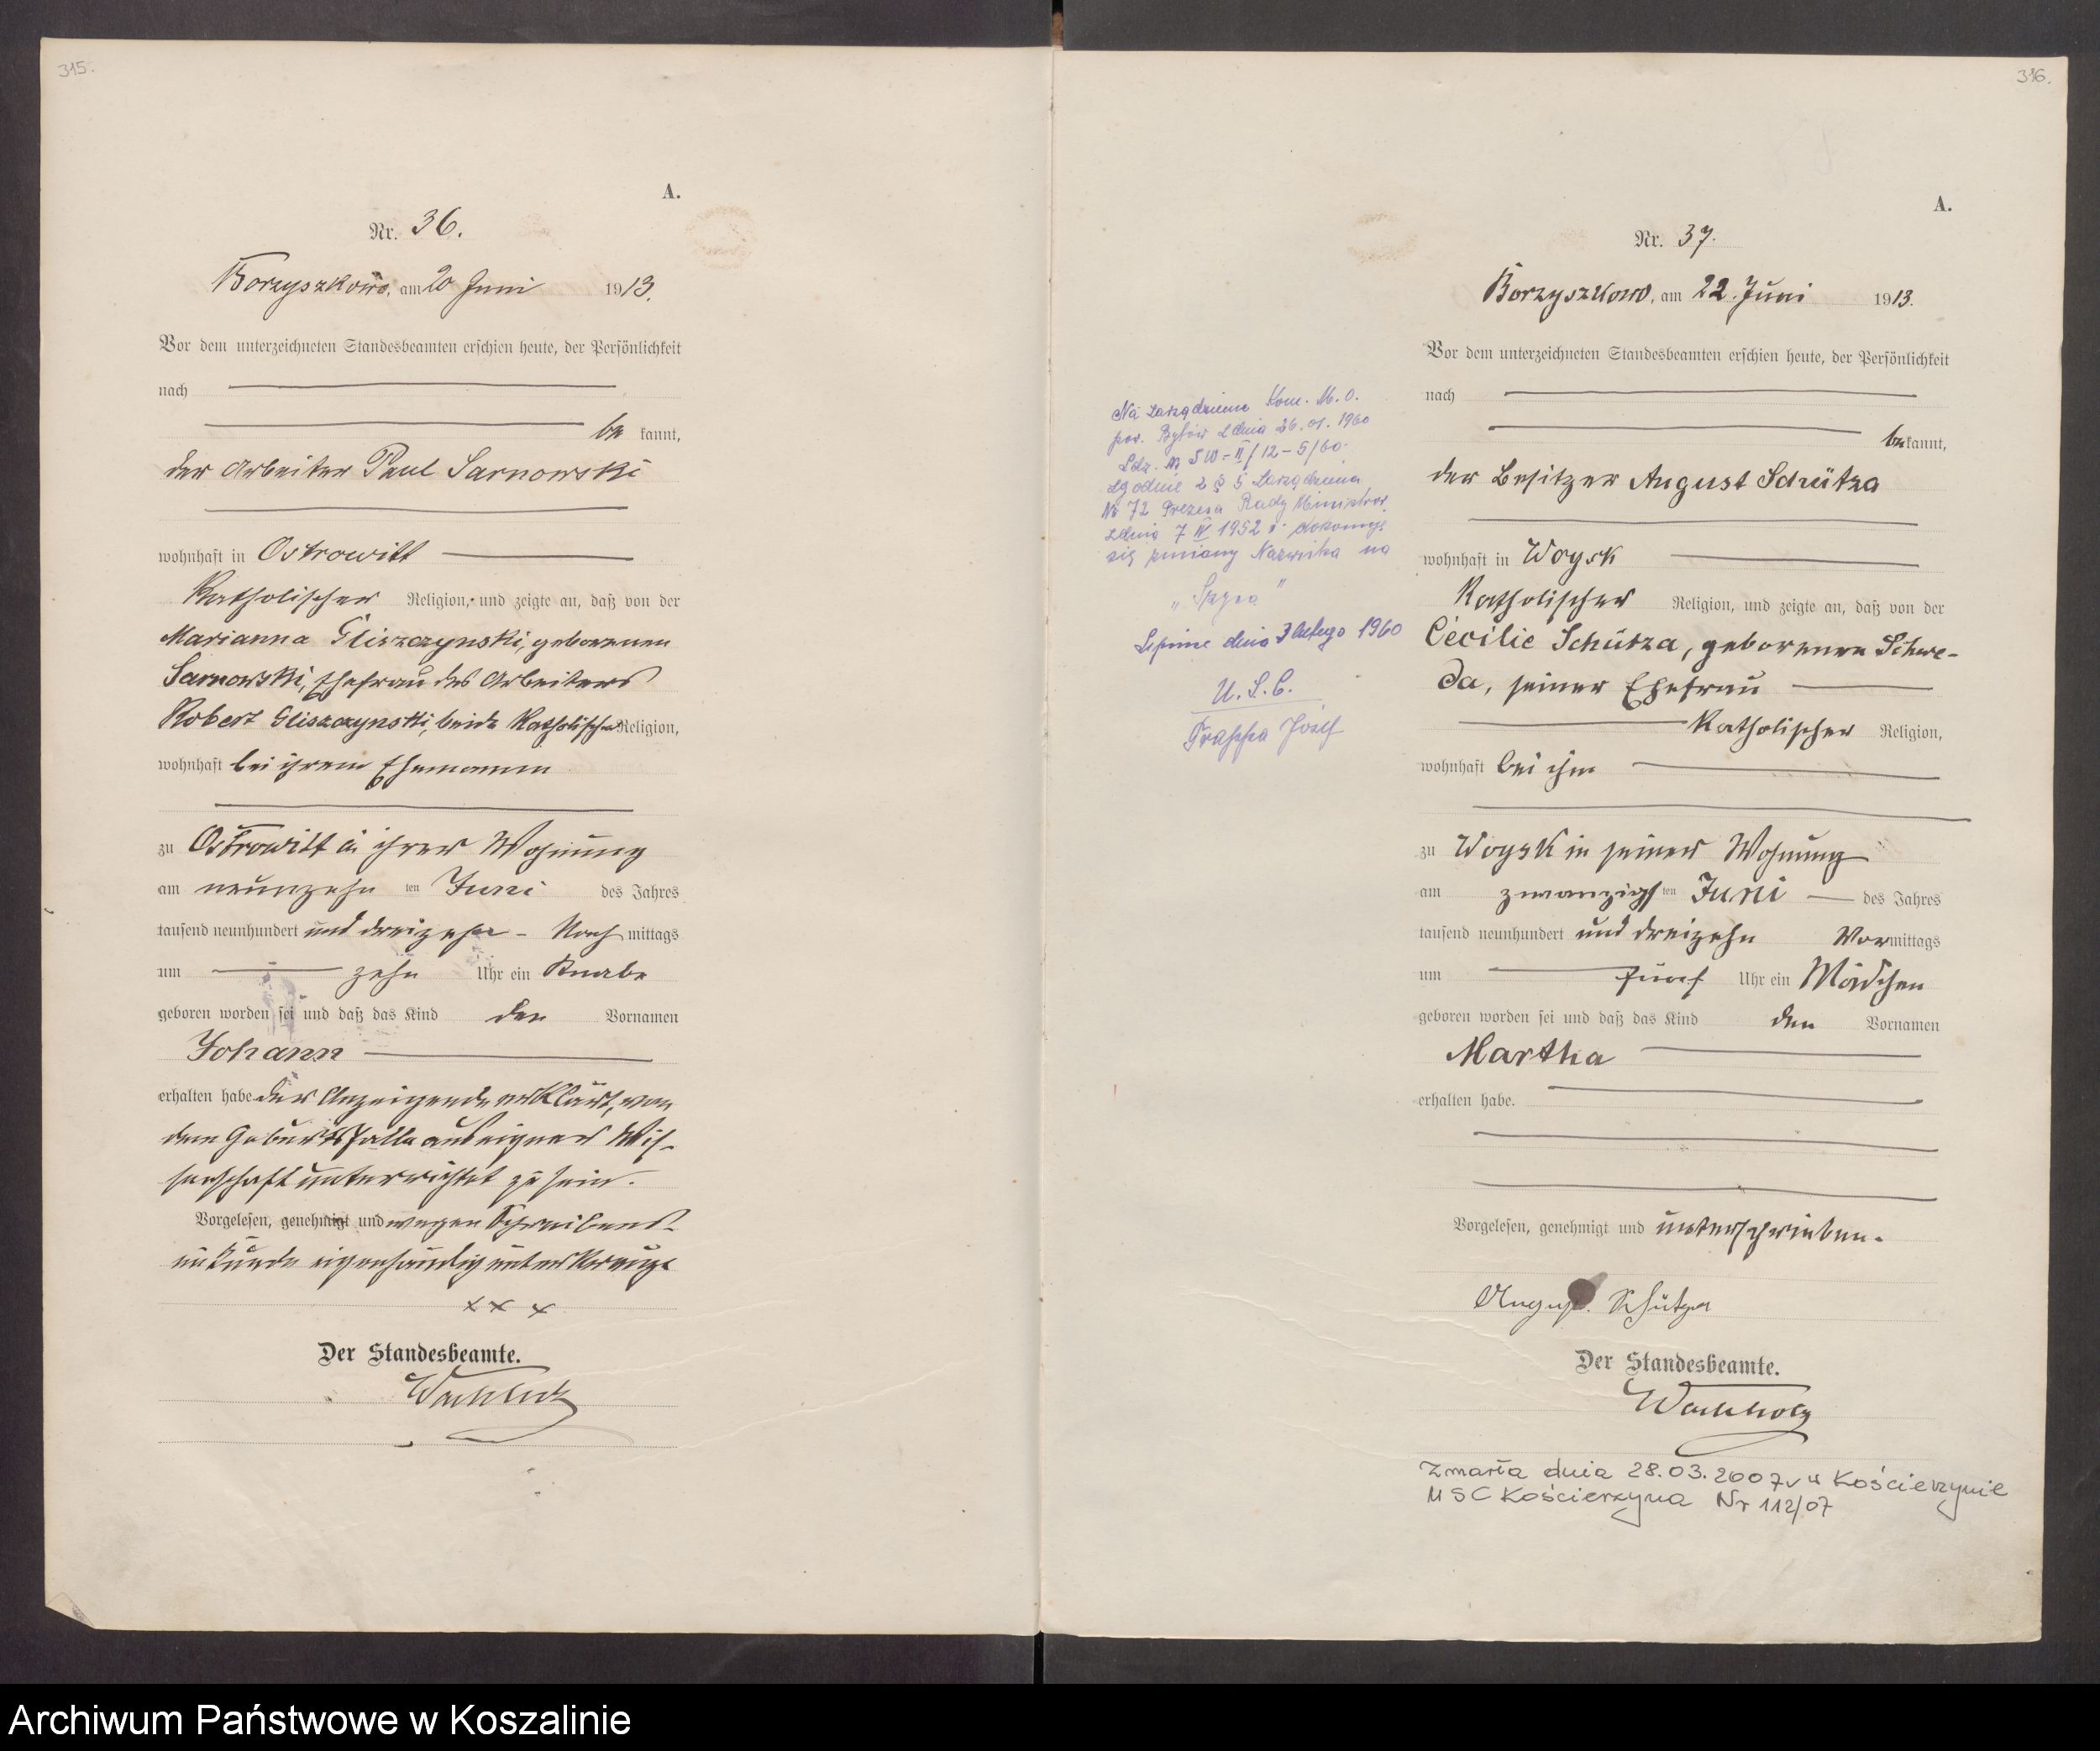 315.
A.
Nr. 36.
Borzyszkowo, am 20 Juni 1913.
Vor dem unterzeichneten Standesbeamten erschien heute, der Persönlichkeit
nach
be kannt,
der Arbeiter Paul Sarnowski
wohnhaft in Ostrowitt
Katholischer Religion, und zeigte an, daß von der
Marianna Gliszczynski, geborenen
Sarnowski, Ehefrau des Arbeiters
Robert Gliszczynski, beide Katholischer Religion,
wohnhaft bei ihrem Ehemanne
zu Ostrowitt in ihrer Wohnung
am neunzehn ten Juni des Jahres
tausend neunhundert und dreizehn - Nach mittags
um zehn Uhr ein Knabe
geboren worden sei und daß das Kind den Vornamen
Johann
erhalten habe. Der Anzeigende erklärt, von
dem Geburtsfalle aus eigener Wis-
senschaft unterrichtet zu sein.
Vorgelesen, genehmigt und wegen Schreibens-
unkunde eigenhändig unterkreuzt
x x x
Der Standesbeamte.
Wachholz
316.
A.
Nr. 37.
Borzyszkowo, am 22. Juni 1913.
Vor dem unterzeichneten Standesbeamten erschien heute, der Persönlichkeit
nach
bekannt,
der Besitzer August Schütza
wohnhaft in Woysk
Katholischer Religion, und zeigte an, daß von der
Cecilie Schütza, geborenen Schwe-
da, seiner Ehefrau
Katholischer Religion,
wohnhaft bei ihm
zu Woysk in seiner Wohnung
am zwanzigsten Juni des Jahres
tausend neunhundert und dreizehn Vormittags
um fünf Uhr ein Mädchen
geboren worden sei und daß das Kind den Vornamen
Martha
erhalten habe.
Vorgelesen, genehmigt und unterschrieben.
August Schütza
Der Standesbeamte.
Wachholz
Zmarła dnia 28.03.2007 w Kościerzynie
USC Kościerzyna Nr 112/07
Na zarządzenie Kom. M.O.
pow. Bytów z dnia 26.01.1960
Ldz. SW-II/12-5/60.
zgodnie z § 5 Zarządzenia
Nr 72 Prezesa Rady Ministrów
z dnia 7 IV 1952 r. dokonuje
się zmiany Nazwiska na
dnia 3 lutego 1960
U.S.C.
Trappa Józef
Archiwum Państwowe w Koszalinie